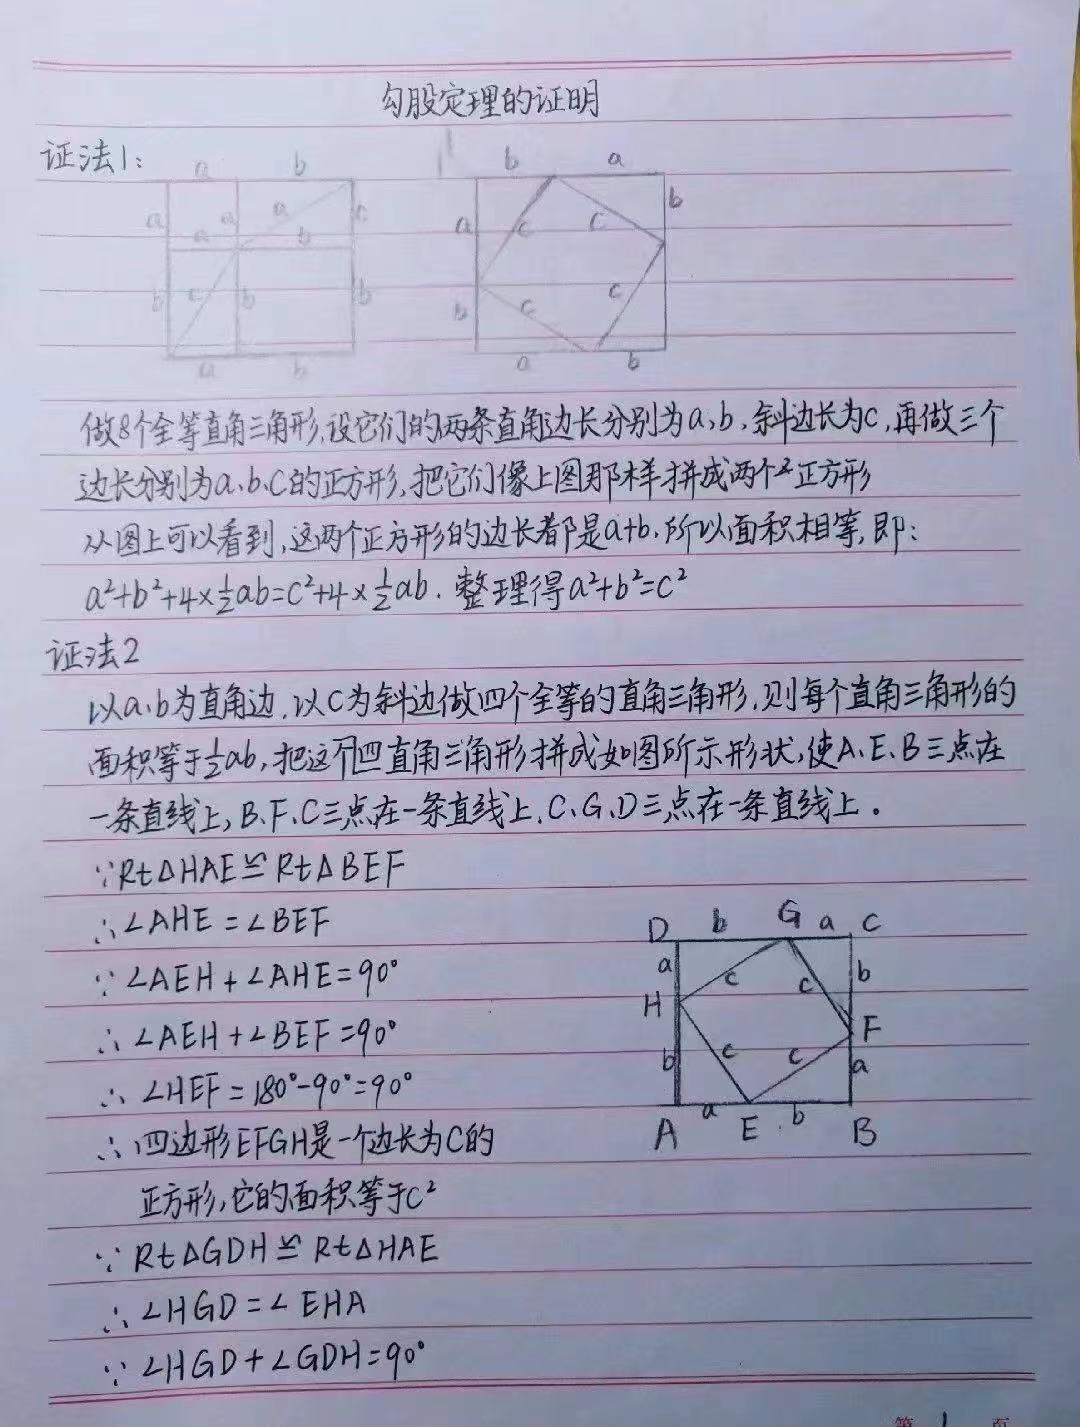 勾股定理的证明
证法1:
a b
a a a c
a b
b c b b
a b
b a
a c c b
b c c
a b
做8个全等直角三角形,设它们的两条直角边长分别为a、b,斜边长为c,再做三个
边长分别为a、b、C的正方形,把它们像上图那样拼成两个正方形
从图上可以看到,这两个正方形的边长都是a+b.所以面积相等,即:
a²+b²+4×½ab=c²+4×½ab. 整理得a²+b²=c²
证法2
以a、b为直角边,以C为斜边做四个全等的直角三角形,则每个直角三角形的
面积等于½ab,把这个四直角三角形拼成如图所示形状,使A、E、B三点在
一条直线上,B、F、C三点在一条直线上,C、G、D三点在一条直线上。
∵Rt△HAE≌Rt△BEF
∴∠AHE=∠BEF
∵∠AEH+∠AHE=90°
∴∠AEH+∠BEF=90°
∴∠HEF=180°-90°=90°
∴四边形EFGH是一个边长为C的
正方形,它的面积等于c²
∵Rt△GDH≌Rt△HAE
∴∠HGD=∠EHA
∵∠HGD+∠GDH=90°
D b G a C
a c c b
H F
b c c a
a b
A E B
第 1 页